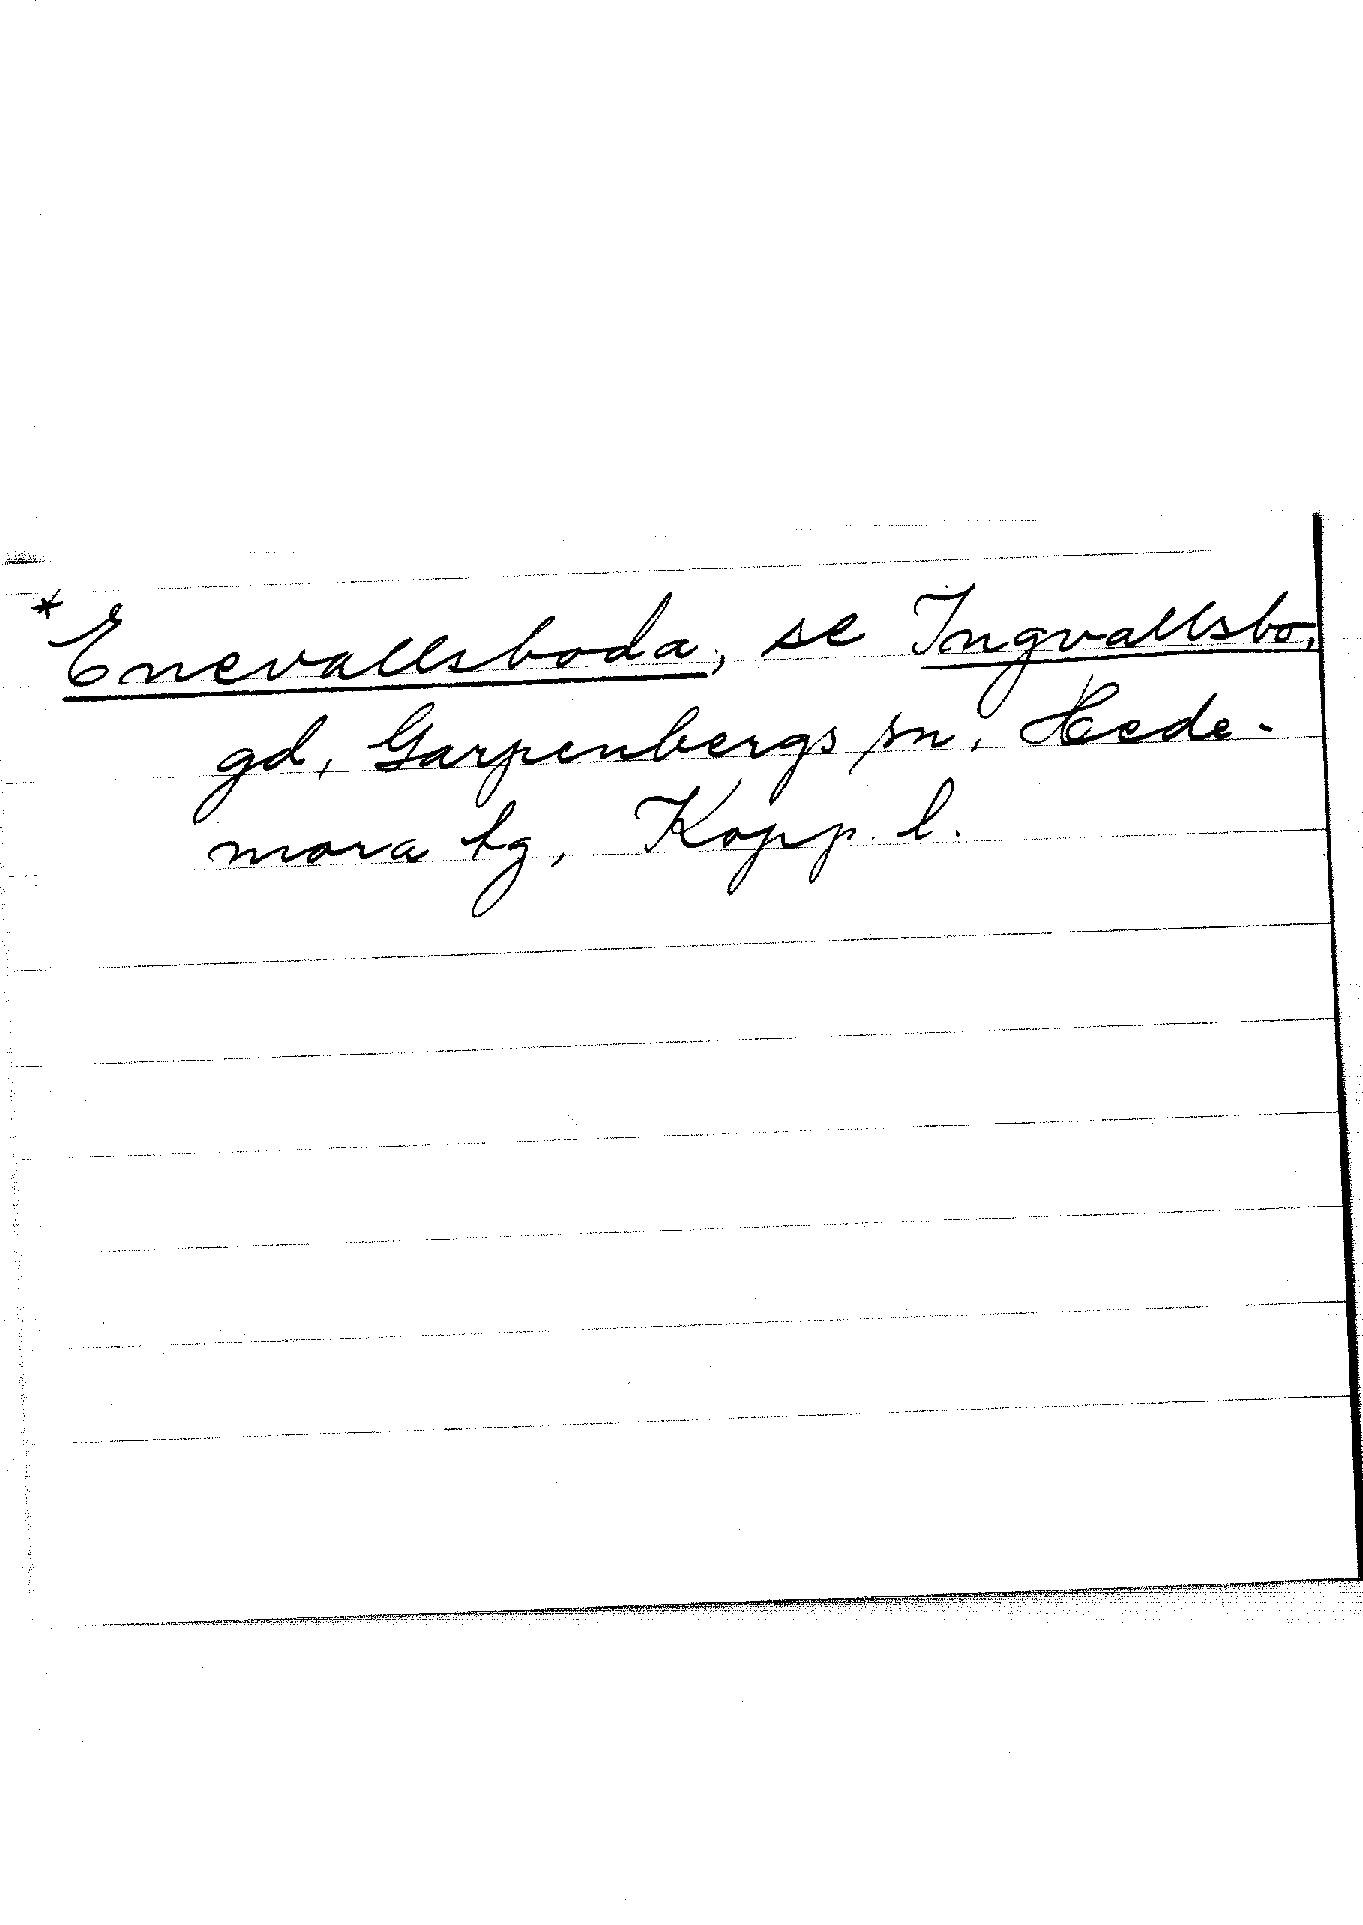 *Enevallsboda, se Ingvallsbo,
gd, Garpenbergs sn, Hede-
mora tg, Kopp. l.